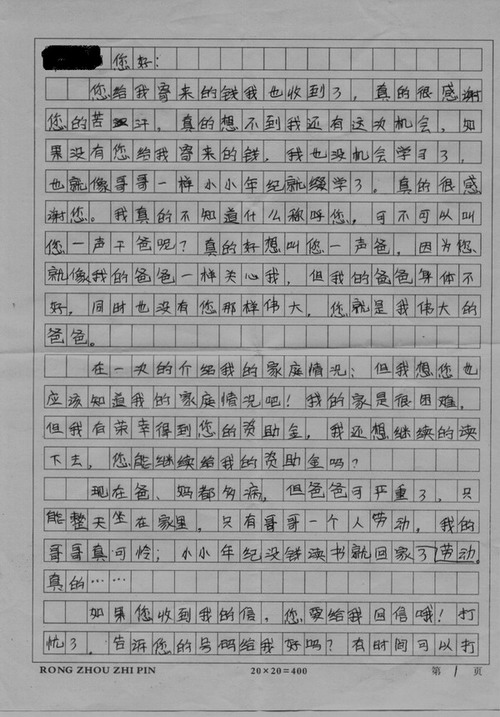 您好:
您给我寄来的钱我也收到了，真的很感谢
您的苦汗，真的想不到我还有这次机会，如
果没有您给我寄来的钱，我也没机会学习了，
也就像哥哥一样小小年纪就缀学了。真的很感
谢您。我真的不知道什么称呼您，可不可以叫
您一声干爸呢？真的好想叫您一声爸，因为您、
就像我的爸爸一样关心我，但我的爸爸身体不
好，同时也没有您那样伟大，您就是我伟大的
爸爸。
在一次的介绍我的家庭情况；但我想您也
应该知道我的家庭情况吧！我的家是很困难，
但我有荣幸得到您的资助金，我还想继续的读
下去，您能继续给我的资助金吗？
现在爸、妈都多病，但爸爸可严重了，只
能整天坐在家里，只有哥哥一个人劳动，我的
哥哥真可怜；小小年纪没钱读书就回家了劳动。
真的……
如果您收到我的信，您要给我回信哦！打
忧了。告诉您的号码给我好吗？有时间可以打
RONG ZHOU ZHI PIN 20×20=400 第 1 页